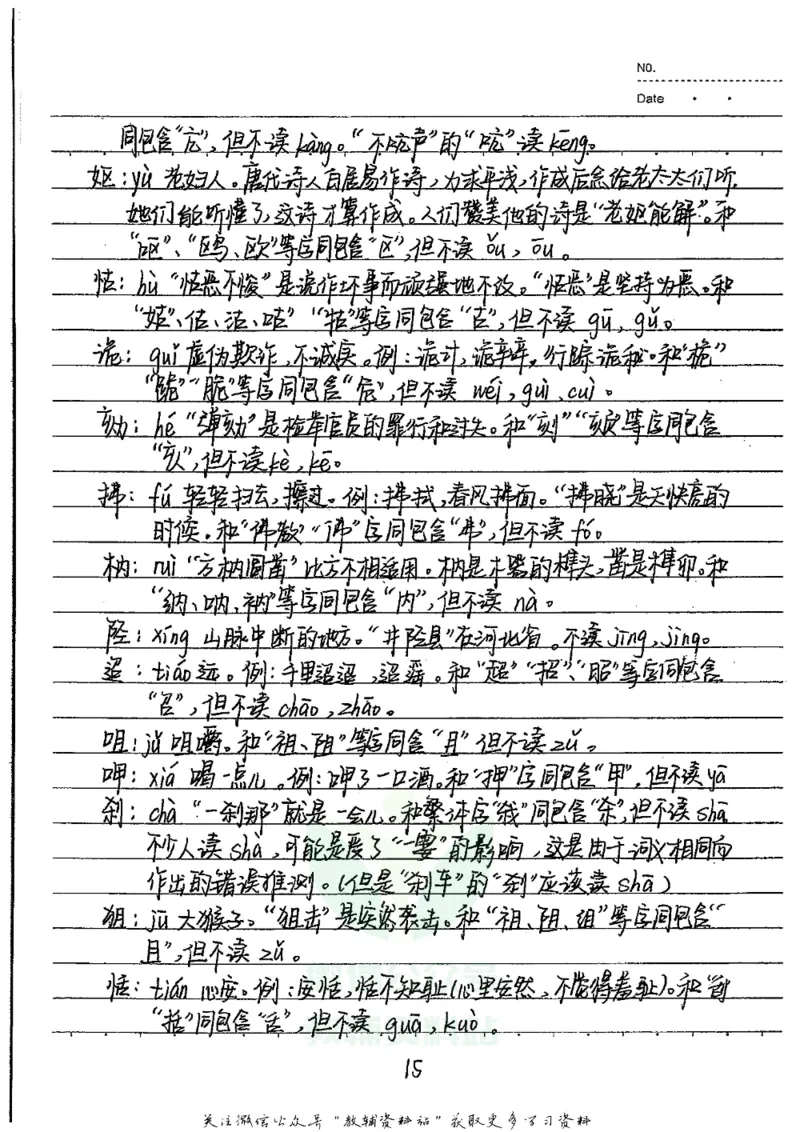 NO.
Date
同包含"亢",但不读kàng。"不吭声"的"吭"读kēng。
妪:yù 老妇人。唐代诗人白居易作诗,为求平浅,作成后念给老太太们听,
她们能听懂了,这诗才算作成。人们赞美他的诗是"老妪能解"。和
"呕"、"鸥、欧"等字同包含"区",但不读ǒu,ōu。
怙:hù "怙恶不悛"是说作坏事而顽强地不改。"怙恶"是坚持为恶。和
"姑"、估、沽、咕" "牯"等字同包含"古",但不读 gū,gǔ。
诡:guǐ 虚伪欺诈,不诚实。例:诡计,诡辩,行踪诡秘。和"桅"
"跪""脆"等字同包含"危",但不读 wéi,guì、cuì。
劾:hé "弹劾"是检举官员的罪行和过失。和"刻""颏"等字同包含
"亥",但不读kè,kē。
拂:fú 轻轻扫去,擦过。例:拂拭,春风拂面。"拂晓"是天快亮的
时候。和"佛教""佛"字同包含"弗",但不读fó。
枘:ruì "方枘圆凿"比方不相适用。枘是木器的榫头,凿是榫卯。和
"纳、呐、衲"等字同包含"内",但不读 nà。
陉:xíng 山脉中断的地方。"井陉县"在河北省。不读jīng,jìng。
迢:tiáo远。例:千里迢迢,迢遥。和"超""招"、"昭"等字同包含
"召",但不读chāo,zhāo。
咀:jǔ 咀嚼。和"祖、阻"等字同含"且"但不读zǔ。
呷:xiā 喝一点儿。例:呷了一口酒。和"押"字同包含"甲",但不读yā
刹:chà "一刹那"就是一会儿。和繁体字"殺"同包含"杀",但不读shā
不少人读shà,可能是受了"一霎"的影响,这是由于词义相同而
作出的错误推测。(但是"刹车"的"刹"应该读shā)
狙:jū 大猴子。"狙击"是突然袭击。和"祖、阻、组"等字同包含"
且",但不读 zǔ。
恬:tián 心安。例:安恬,恬不知耻(心里安然,不觉得羞耻)。和"刮"
"括"同包含"舌",但不读 guā,kuò。
15
关注微信公众号"教辅资料站"获取更多学习资料